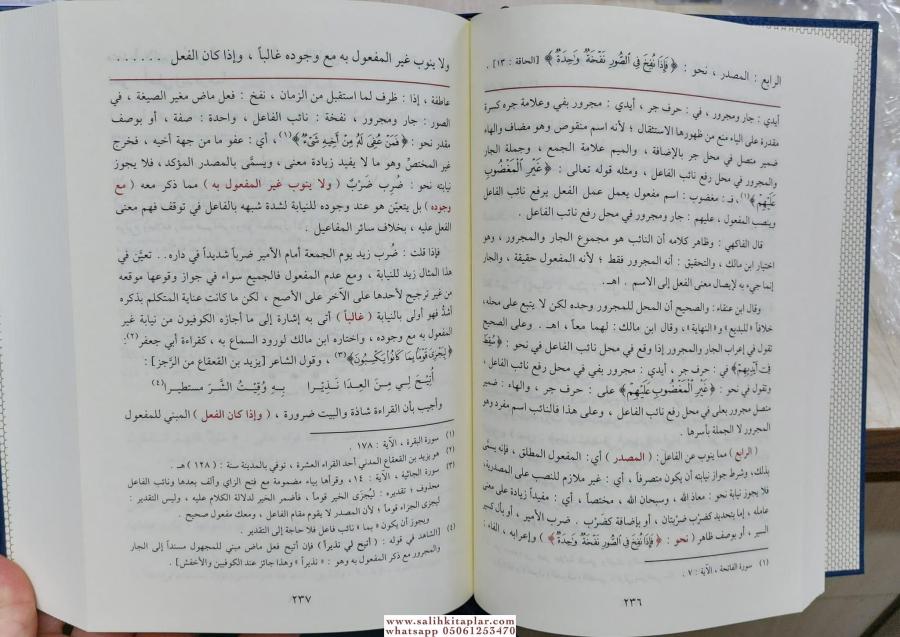 الرابع : المصدر ، نحو : ﴿ فَإِذَا نُفِخَ فِي الصُّورِ نَفْخَةٌ وَاحِدَةٌ ﴾ [الحاقة : ١٣] .
أيدي : جار ومجرور ، في : حرف جر ، أيدي : مجرور بفي وعلامة جره كسرة
مقدرة على الياء منع من ظهورها الاستثقال ؛ لأنه اسم منقوص وهو مضاف والهاء
ضمير متصل في محل جر بالإضافة ، والميم علامة الجمع ، وجملة الجار
والمجرور في محل رفع نائب الفاعل ، ومثله قوله تعالى : ﴿ غَيْرِ الْمَغْضُوبِ
عَلَيْهِمْ ﴾(١)، فـ : مغضوب : اسم مفعول يعمل عمل الفعل يرفع نائب الفاعل
وينصب المفعول ، عليهم : جار ومجرور في محل رفع نائب الفاعل .
قال الفاكهي : وظاهر كلامه أن النائب هو مجموع الجار والمجرور ، وهو
اختيار ابن مالك ، والتحقيق : أنه المجرور فقط ؛ لأنه المفعول حقيقة ، والجار
إنما جيء به لإيصال معنى الفعل إلى الاسم . اهـ .
وقال ابن عنقاء : والصحيح أن المحل للمجرور وحده لكن لا يتبع على محله،
خلافاً «للبديع» و«النهاية»، وقال ابن مالك : لهما معاً ، اهـ . وعلى الصحيح
تقول في إعراب الجار والمجرور إذا وقع في محل نائب الفاعل في نحو : ﴿ سُقِطَ
فِي أَيْدِيهِمْ ﴾ في : حرف جر ، أيدي : مجرور بفي في محل رفع نائب الفاعل ،
وتقول في نحو : ﴿ غَيْرِ الْمَغْضُوبِ عَلَيْهِمْ ﴾ على : حرف جر ، والهاء : ضمير
متصل مجرور بعلى في محل رفع نائب الفاعل ، وعلى هذا فالنائب اسم مفرد وهو
المجرور لا الجملة بأسرها .
( الرابع ) مما ينوب عن الفاعل : ( المصدر ) أي : المفعول المطلق ، فإنه يسمَّى
بذلك، وشرط جواز نيابته أن يكون متصرفاً ، أي : غير ملازم للنصب على المصدرية،
فلا يجوز نيابة نحو : معاذ الله ، وسبحان الله ، مختصاً ، أي : مفيداً زيادة على معنى
عامله ، إما بتحديد كضرب ضربتان ، أو بإضافة كضرب . ضرب الأمير ، أو بأل كسير
السير ، أو بوصف ظاهر ( نحو : ﴿ فَإِذَا نُفِخَ فِي الصُّورِ نَفْخَةٌ وَاحِدَةٌ ﴾ ) وإعرابه ، الفاء :
(١) سورة الفاتحة ، الآية : ٧ .
٢٣٦
ولا ينوب غير المفعول به مع وجوده غالباً ، وإذا كان الفعل . . . . . .
عاطفة ، إذا : ظرف لما استقبل من الزمان ، نفخ : فعل ماض مغير الصيغة ، في
الصور : جار ومجرور ، نفخة : نائب الفاعل ، واحدة : صفة ، أو بوصف
مقدر نحو : ﴿ فَمَنْ عُفِيَ لَهُ مِنْ أَخِيهِ شَيْءٌ ﴾(١)، أي : عفو ما من جهة أخيه ، فخرج
غير المختصِّ وهو ما لا يفيد زيادة معنى ، ويسمَّى بالمصدر المؤكد، فلا يجوز
نيابته نحو : ضُرِب ضَرْبٌ ( ولا ينوب غير المفعول به ) مما ذكر معه ( مع
وجوده ) بل يتعيّن هو عند وجوده للنيابة لشدة شبهه بالفاعل في توقف فهم معنى
الفعل عليه ، بخلاف سائر المفاعيل .
فإذا قلت : ضُرب زيد يوم الجمعة أمام الأمير ضرباً شديداً في داره.. تعيّن في
هذا المثال زيد للنيابة ، ومع عدم المفعول فالجميع سواء في جواز وقوعها موقعه
من غير ترجيح لأحدها على الآخر على الأصح ، لكن ما كانت عناية المتكلم بذكره
أشدَّ فهو أولى بالنيابة ( غالباً ) أتى به إشارة إلى ما أجازه الكوفيون من نيابة غير
المفعول به مع وجوده ، واختاره ابن مالك لورود السماع به ، كقراءة أبي جعفر(٢):
﴿ لِيُجْزَى قَوْمًا بِمَا كَانُوا يَكْسِبُونَ ﴾(٣) ، وقول الشاعر [يزيد بن القعقاع من الرَّجز] :
أُتِيْحَ لِـي مِـنَ العِـدَا نَـذِيْـرَا بِـهِ وُقِيْـتُ الشَّـرَ مستطيـرا(٤)
وأجيب بأن القراءة شاذة والبيت ضرورة ، ( وإذا كان الفعل ) المبني للمفعول
(١) سورة البقرة ، الآية : ١٧٨ .
(٢) هو يزيد بن القعقاع المدني أحد القراء العشرة ، توفي بالمدينة سنة : ( ١٢٨ ) هـ .
(٣) سورة الجاثية ، الآية : ١٤، وقرأها بياء مضمومة مع فتح الزاي وألف بعدها ونائب الفاعل
محذوف ؛ تقديره : ليُجزَى الخير قوماً ، فأضمر الخير لدلالة الكلام عليه ، وليس التقدير :
ليجزى الجزاء قوماً ؛ لأن المصدر لا يقوم مقام الفاعل ، ومعك مفعول صحيح .
ويجوز أن يكون « بما » نائب فاعل فلا حاجة إلى التقدير .
(٤) [الشاهد في قوله : ( أتيح لي نذيراً ) فإن أتيح فعل ماض مبني للمجهول مسنداً إلى الجار
والمجرور مع ذكر المفعول به وهو : « نذيراً » وهذا جائز عند الكوفيين والأخفش] .
٢٣٧
www.salihkitaplar.com
whatsapp 05061253470